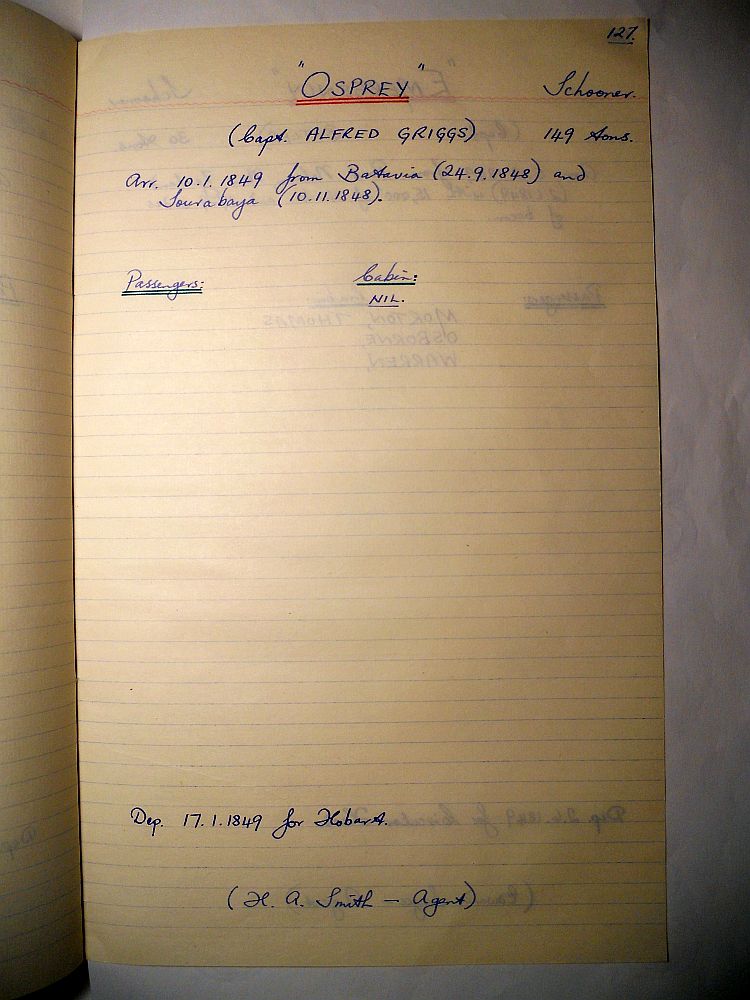 127.
"OSPREY" Schooner.
(Capt. ALFRED GRIGGS) 149 tons.
Arr. 10.1.1849 from Batavia (24.9.1848) and
Sourabaya (10.11.1848).
Passengers: Cabin:
NIL.
Dep. 17.1.1849 for Hobart.
(H. A. Smith – Agent)